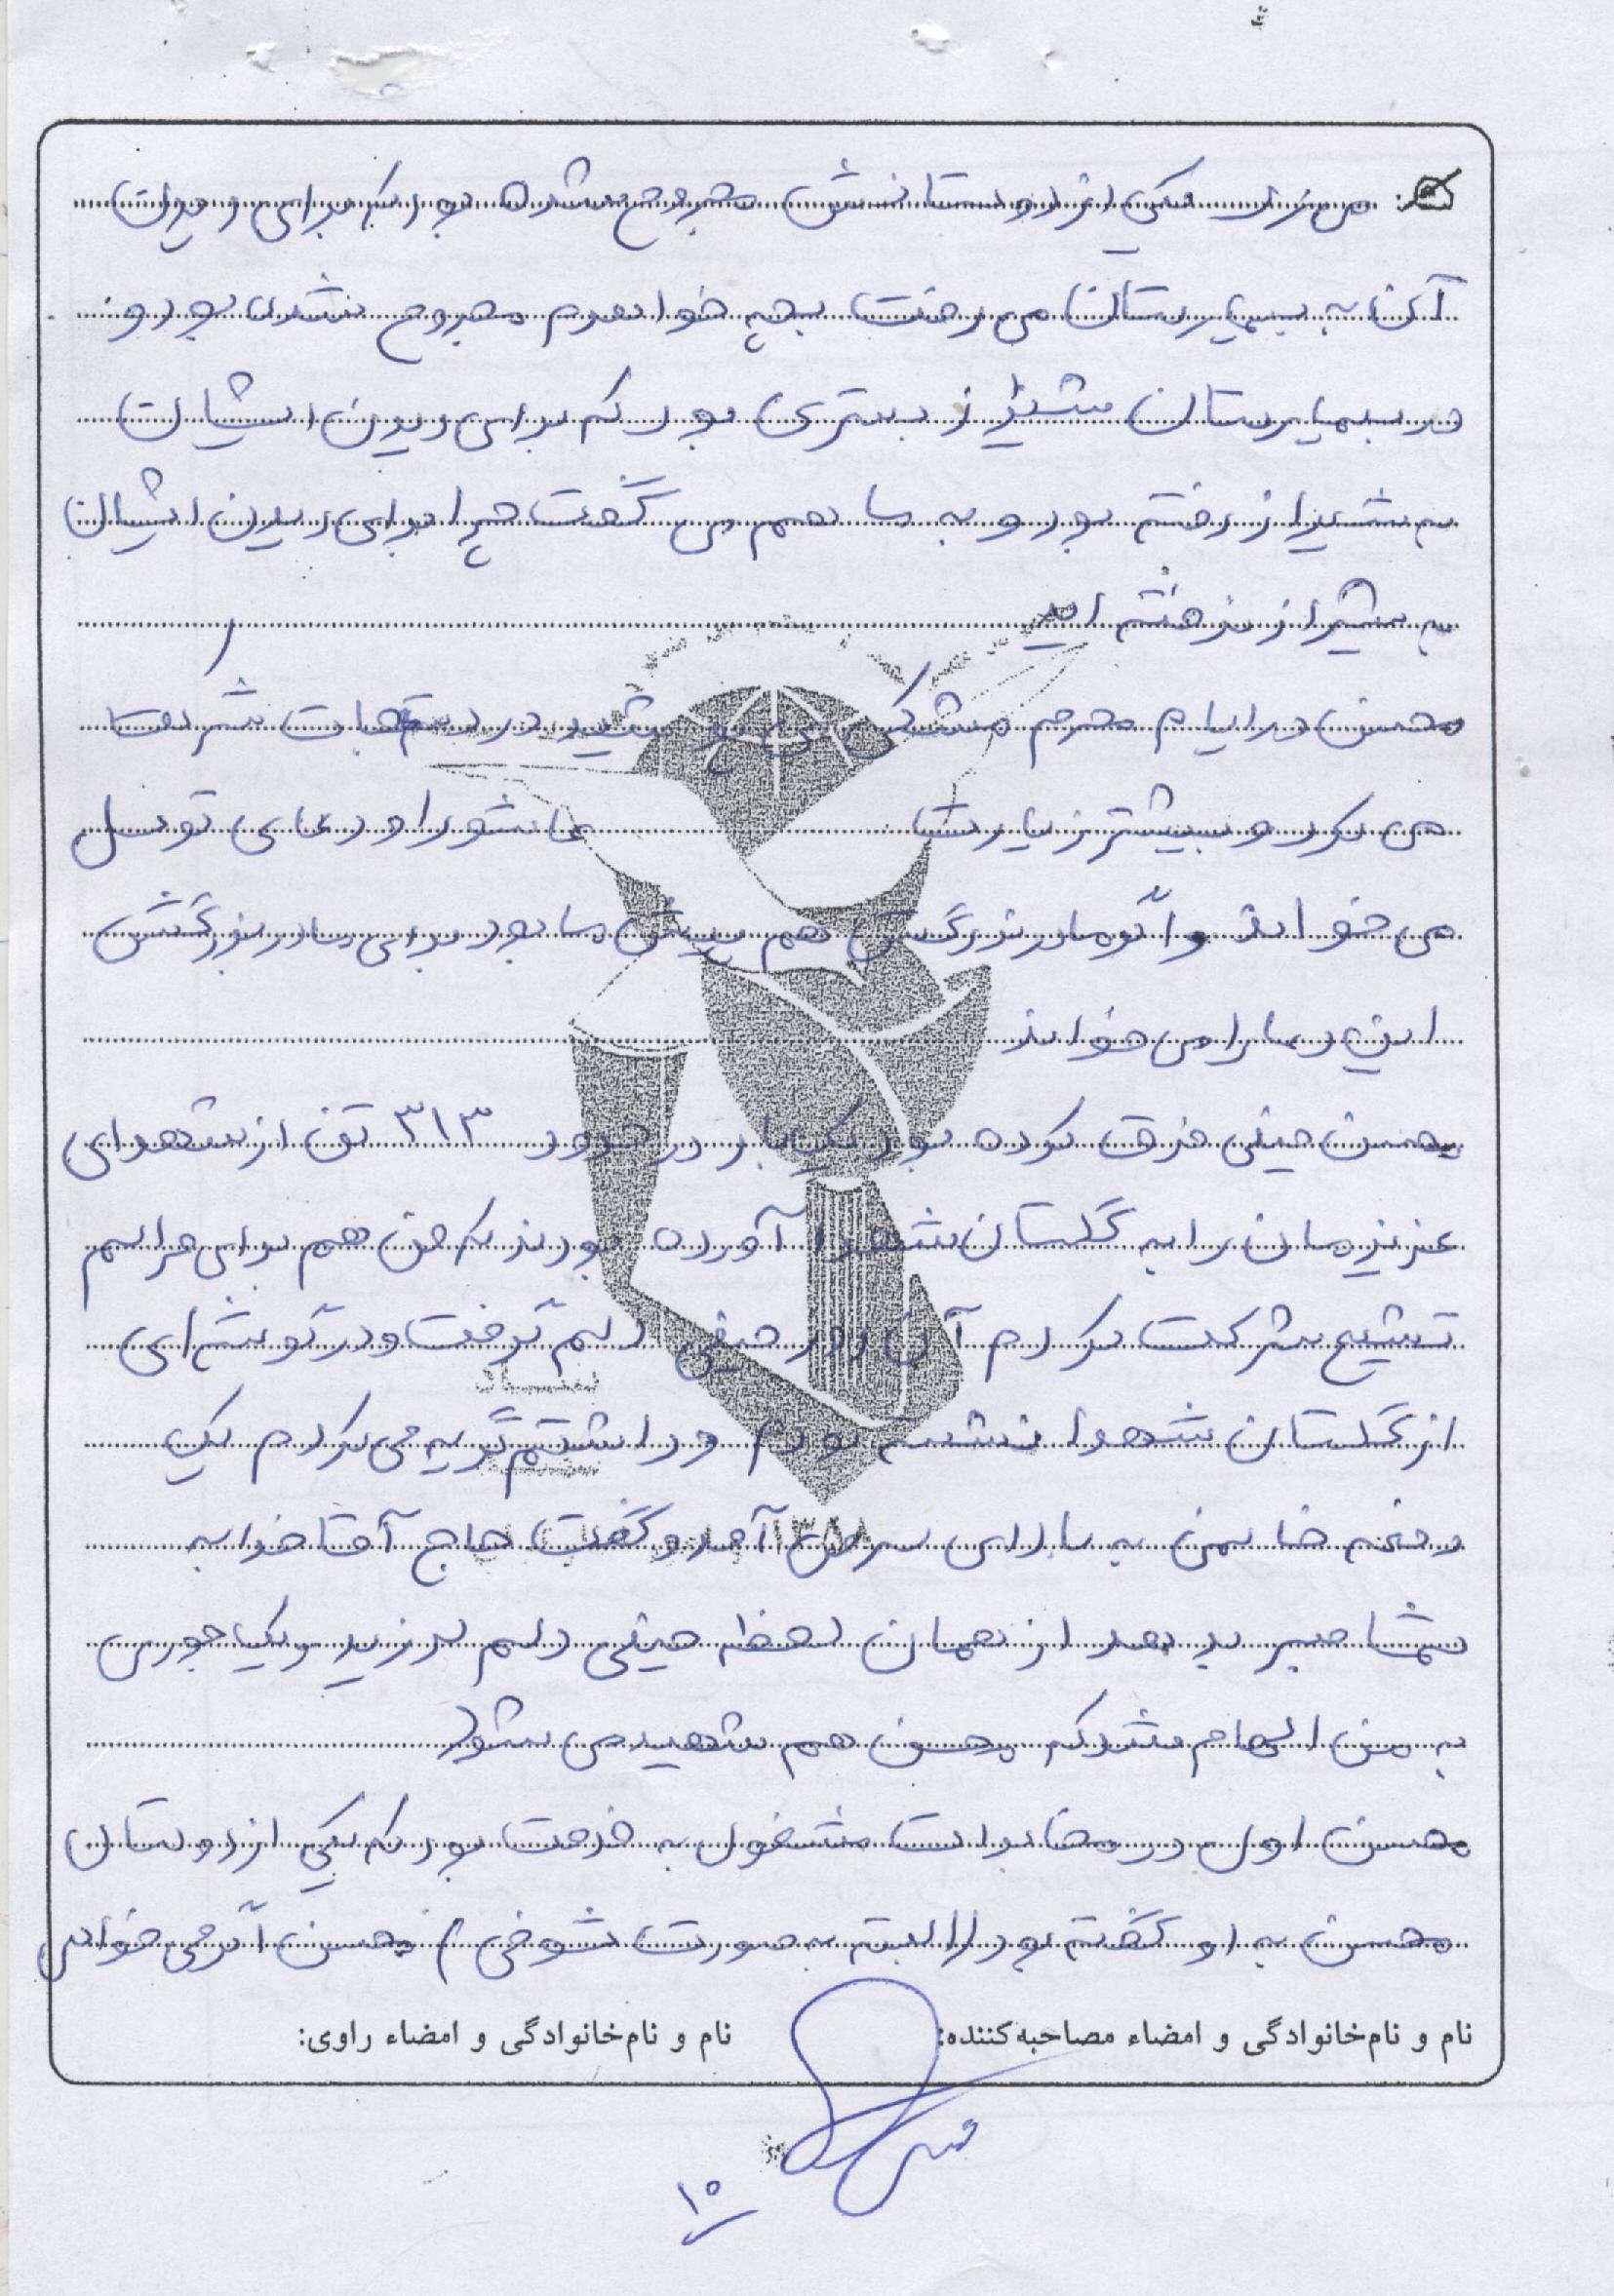 می زد یکی از دوستانش مجروح شده بود که برای دیدن
آن به بیمارستان می رفت بچه خواهرم مجروح شده بود و
در بیمارستان شیراز بستری بود که برای دیدن ایشان
به شیراز رفته بود و به ما هم می گفت چرا برای دیدن ایشان
به شیراز نرفته اید
محسن در ایام محرم مشکی می پوشید در دستجات شرکت
می کرد و بیشتر زیارت عاشورا و دعای توسل
می خواند و اگر مادربزرگش هم پیش ما بود برای مادربزرگش
این دعا را می خواند
محسن خیلی فرق کرده بود یکبار در حدود ۳۱۳ تن از شهدای
عزیزمان را به گلستان شهدا آورده بودند که من هم برای مراسم
تشییع شرکت کردم آن روز خیلی دلم گرفت و در گوشه ای
از گلستان شهدا نشسته بودم و داشتم گریه می کردم یک
دفعه خانمی به بالای سر من آمد و گفت حاج آقا خدا به
شما صبر بدهد از همان لحظه خیلی دلم لرزید و یک جوری
به من الهام شد که محسن هم شهید می شود
محسن اول در مخابرات مشغول به خدمت بود که یکی از دوستان
محسن به او گفته بود (البته به صورت شوخی) محسن اگر می خواهی
نام و نام‌خانوادگی و امضاء مصاحبه‌کننده:
نام و نام‌خانوادگی و امضاء راوی:
۱۰